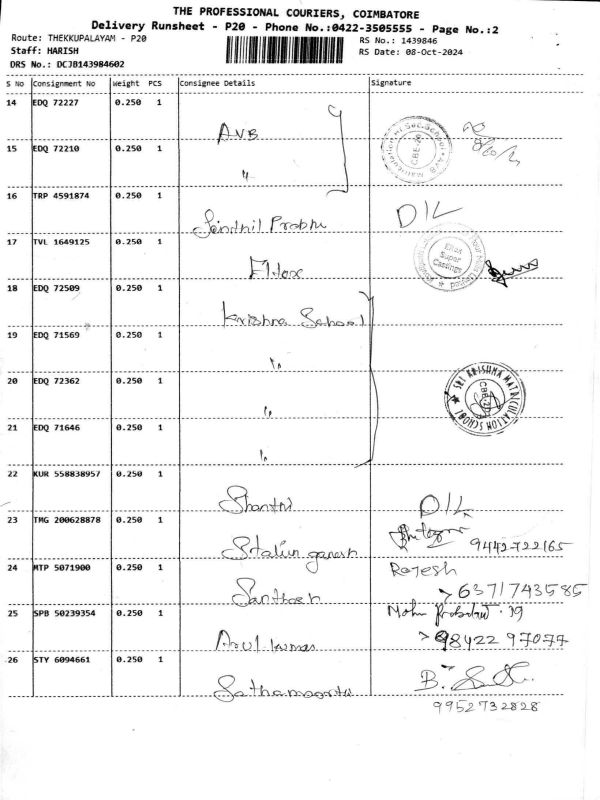 THE PROFESSIONAL COURIERS, COIMBATORE
Delivery Runsheet - P20 - Phone No.:0422-3505555 - Page No.:2
Route: THEKKUPALAYAM - P20
RS No.: 1439846
Staff: HARISH
RS Date: 08-Oct-2024
DRS No.: DCJB143984602
S No Consignment No Weight PCS Consignee Details Signature
14 EDQ 72227 0.250 1 AVB
15 EDQ 72210 0.250 1 "
16 TRP 4591874 0.250 1 Senthil Prabhu D/L
17 TVL 1649125 0.250 1 Eltex
Super
Castings
18 EDQ 72509 0.250 1 Krishna School
19 EDQ 71569 0.250 1 "
20 EDQ 72362 0.250 1 "
SRI KRISHNA MATRICULATION SCHOOL
21 EDQ 71646 0.250 1 "
22 KUR 558838957 0.250 1 Shanthi D/L
23 TMG 200628878 0.250 1 Stalin ganesh 9442722165
24 MTP 5071900 0.250 1 Santhosh Rajesh
6371743585
25 SPB 50239354 0.250 1 Arul kumar
98422 97077
26 STY 6094661 0.250 1 Sathamoorthi B.
9952732828